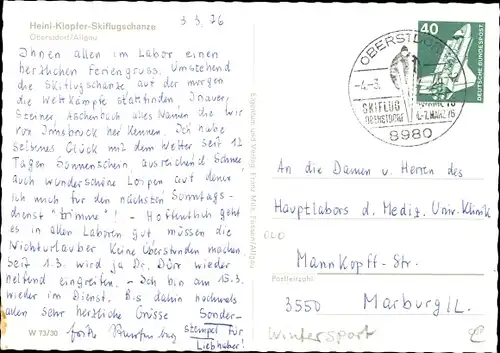 Heini-Klopfer-Skiflugschanze
Oberstdorf/Allgäu
3.3.76
Ihnen allen im Labor einen
herzlichen Feriengruss. Umstehend
die Skiflugschanze auf der morgen
die Wettkämpfe stattfinden, Inauer,
Steiner, Aschenbach alles Namen die wir
von Innsbruck her kennen. Ich habe
seltenes Glück mit dem Wetter seit 12
Tagen Sonnenschein, ausreichend Schnee,
auch wunderschöne Loipen auf denen
ich mich für den nächsten Sonntags-
dienst "trimme"! - Hoffentlich geht
es in allen Laboren gut, müssen die
Nichturlauber keine Überstunden machen.
Seit 1.3. wird ja Dr. Dürr wieder
helfend eingreifen. - Ich bin am 15.03.
wieder im Dienst. Bis dahin nochmals
allen sehr herzliche Grüsse
Sonder-
stempel für
Liebhaber!
W 73/30
OBERSTDORF
-4.-3.
SKIFLUG
OBERSTDORF
4.-7. MÄRZ 76
8980
40
DEUTSCHE BUNDESPOST
An die Damen u. Herren des
Hauptlabors d. Mediz. Univ. Klinik
Mannkopff-Str.
Postleitzahl
3550 Marburg/L.
Wintersport